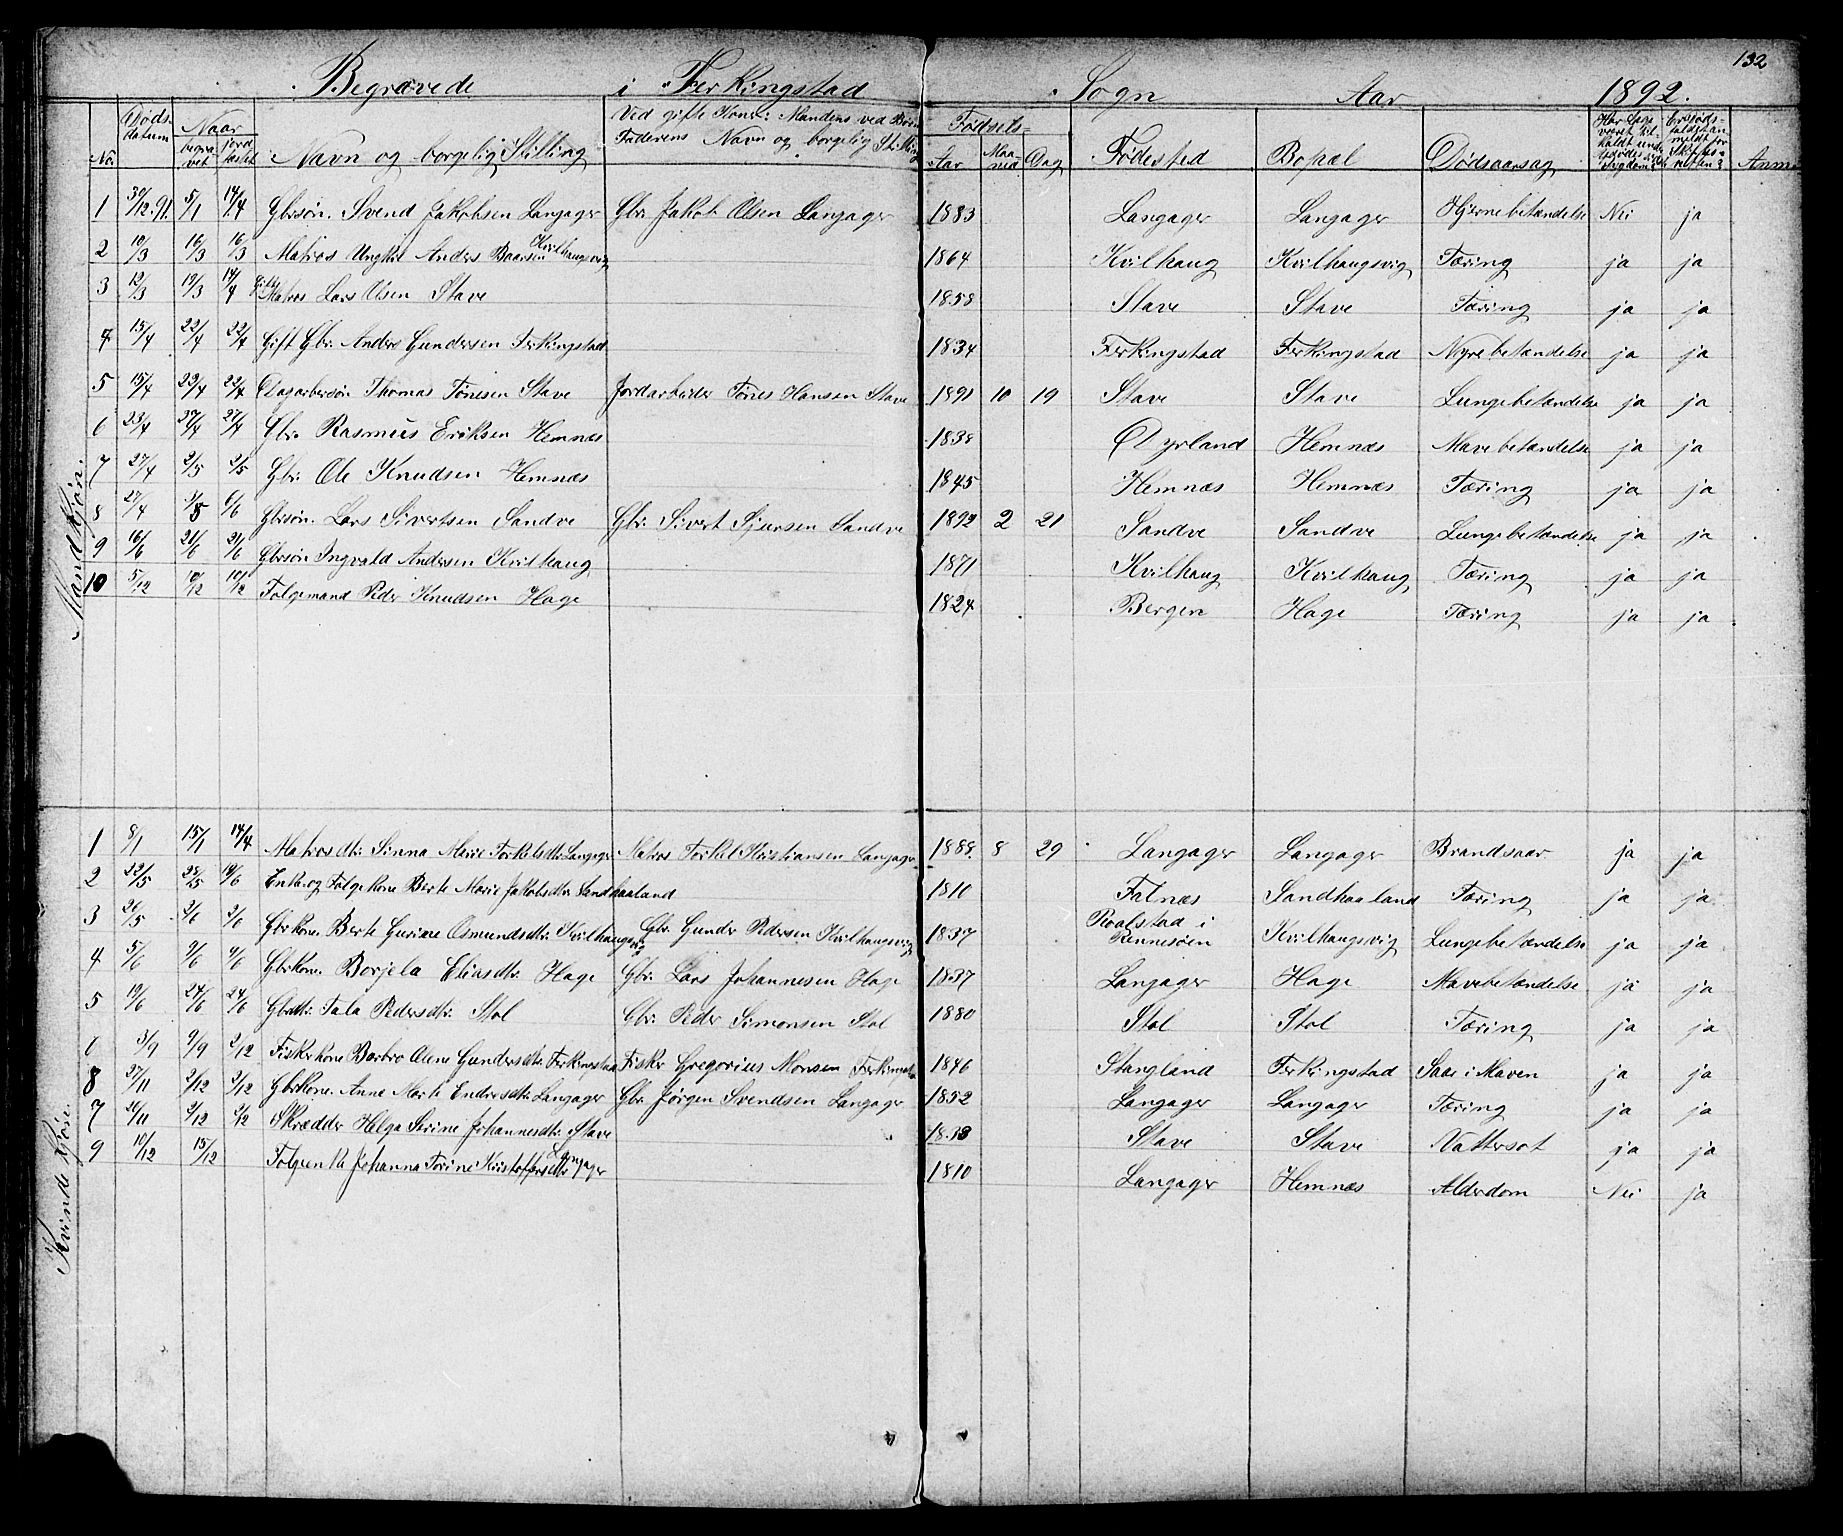 132
Begravede i Ferkingstad Sogn Aar 1892.
No. Døds-datum Naar begravet jordfæstet Navn og borgelig Stilling Ved gifte Koner: Mandens ved Børn Faderens Navn og borgelig Stilling Fødsels- Aar Maaned Dag Fødested Bopæl Dødsaarsag Har Læge været tilkaldt under Sygdom Anm
Mandkjøn.
1 30/12.91. 5/1 14/4 Gbrsøn. Svend Jakobsen Langager Gbr. Jakob Olsen Langager 1883 Langager Langager Hjernebetændelse Nei ja
2 10/3 16/3 16/3 Matros Ungkl Anders Baarsen Kvilhaugsvig 1864 Kvilhaug Kvilhaugsvig Tæring ja ja
3 12/3 19/3 14/4 Gift Matros Lars Olsen Stave 1858 Stave Stave Tæring ja ja
4 15/4 22/4 22/4 Gift Gbr. Anders Gundersen Ferkingstad 1834 Ferkingstad Ferkingstad Nyrebetændelse ja ja
5 15/4 22/4 22/4 Dagarbersøn Thomas Tønesen Stave Jordarbeider Tønes Hansen Stave 1891 10 19 Stave Stave Lungebetændelse ja ja
6 23/4 27/4 27/4 Gbr. Rasmus Eriksen Hemnæs 1838 Dyrland Hemnæs Mavebetændelse ja ja
7 27/4 2/5 2/5 Gbr. Ole Knudsen Hemnæs 1845 Hemnæs Hemnæs Tæring ja ja
8 27/4 3/5 6/6 Gbrsøn. Lars Sivertsen Sandve Gbr. Sivert Sjursen Sandve 1892 2 21 Sandve Sandve Lungebetændelse ja ja
9 16/6 21/6 21/6 Gbrsøn Ingvald Andersen Kvilhaug 1871 Kvilhaug Kvilhaug Tæring ja ja
10 5/12 10/12 10/12 Folgemand Peder Knudsen Hage 1824 Bergen Hage Tæring ja ja
Kvindekjøn.
1 8/1 15/1 14/4 Matrosdtr. Sinna Marie Torkelsdtr. Langager Matros Torkel Kristiansen Langager 1888. 8 29 Langager Langager Brandsaar ja ja
2 22/5 25/5 19/6 Enke og Folgekone Berte Marie Jakobsdtr. Sandhaaland 1810 Falnæs Sandhaaland Tæring ja ja
3 26/5 2/6 2/6 Gbrkone. Berte Gurine Osmundsdtr. Kvilhaugsvig Gbr. Gunder Pedersen Kvilhaugsvig 1837 Roalstad i Rennesøen Kvilhaugsvig Lungebetændelse ja ja
4 5/6 9/6 9/6 Gbrkone. Borjela Eliasdtr. Hage Gbr. Lars Johannesen Hage 1837 Langager Hage Mavebetændelse ja ja
5 19/6 24/6 24/6 Gbrdtr. Tala Pedersdtr. Stol Gbr. Peder Simonsen Stol 1880 Stol Stol Tæring ja ja
6 3/9 9/9 2/12 Fiskerkone Barbro Olene Gundersdtr. Ferkingstad Fisker Gregorius Monsen Ferkingstad 1846 Stangland Ferkingstad Saar i Maven ja ja
8 27/11 2/12 2/12 Gbrkone. Anne Marte Endresdtr. Langager Gbr. Jørgen Svendsen Langager 1852 Langager Langager Tæring ja ja
7 26/11 2/12 2/12 Skrædder Helga Serine Johannesdtr. Stave Stave Stave Vattersot ja ja
9 10/12 15/12 Folgenk Johanna Torine Kristoffersdtr Langager 1810 Langager Hemnæs Alderdom Nei ja